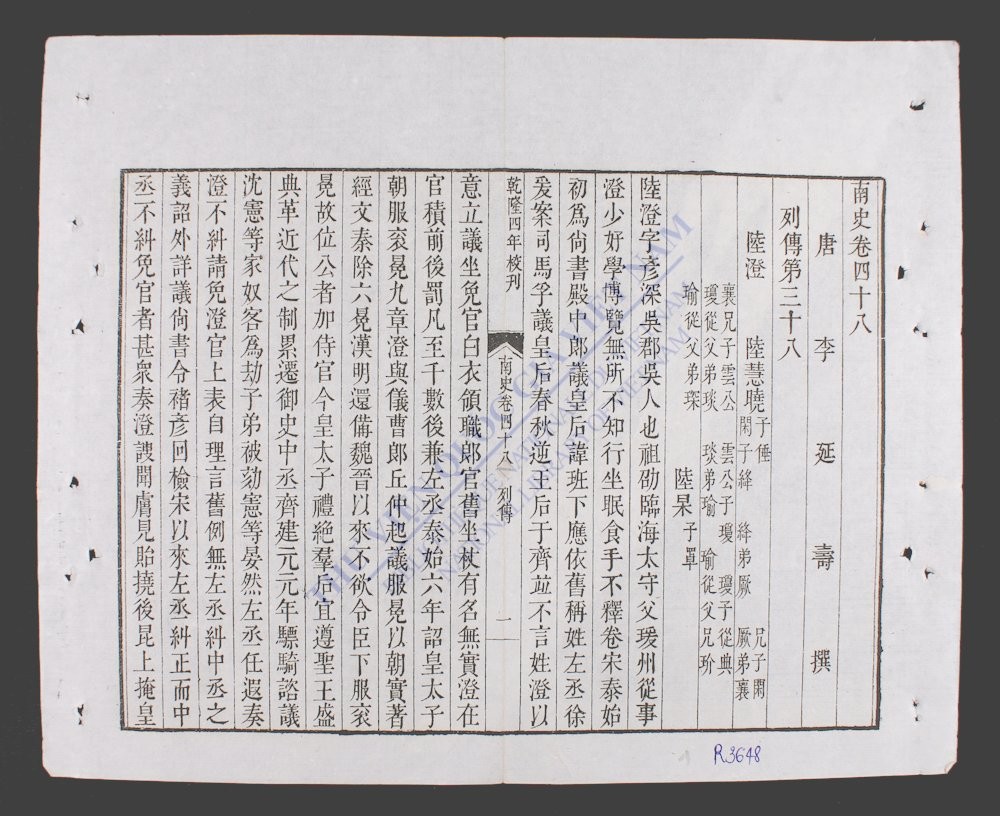 南史卷四十八
唐 李 延 壽 撰
列傳第三十八
陸澄 陸慧曉 子倕 兄子閑
閑子絳 絳弟厥 厥弟襄
襄兄子雲公 雲公子瓊 瓊子從典
瓊從父弟琰 琰弟瑜 瑜從父兄玠
瑜從父弟琛 陸杲 子罩
陸澄字彥深吳郡吳人也祖劭臨海太守父瑗州從事
澄少好學博覽無所不知行坐眠食手不釋卷宋泰始
初爲尚書殿中郎議皇后諱班下應依舊稱姓左丞徐
爰案司馬孚議皇后春秋逆王后于齊並不言姓澄以
乾隆四年校刊
南史卷四十八 列傳 一
意立議坐免官白衣領職郎官舊坐杖有名無實澄在
官積前後罰凡至千數後兼左丞泰始六年詔皇太子
朝服袞冕九章澄與儀曹郎丘仲起議服冕以朝實著
經文秦除六冕漢明還備魏晉以來不欲令臣下服袞
冕故位公者加侍官今皇太子禮絶羣后宜遵聖王盛
典革近代之制累遷御史中丞齊建元元年驃騎諮議
沈憲等家奴客爲劫子弟被劾憲等晏然左丞任遐奏
澄不糾請免澄官上表自理言舊例無左丞糾中丞之
義詔外詳議尚書令褚彥回檢宋以來左丞糾正而中
丞不糾免官者甚衆奏澄謏聞膚見貽撓後昆上掩皇
THƯ VIỆN QUỐC GIA VIỆT NAM
NATIONAL LIBRARY OF VIETNAM
R.3648